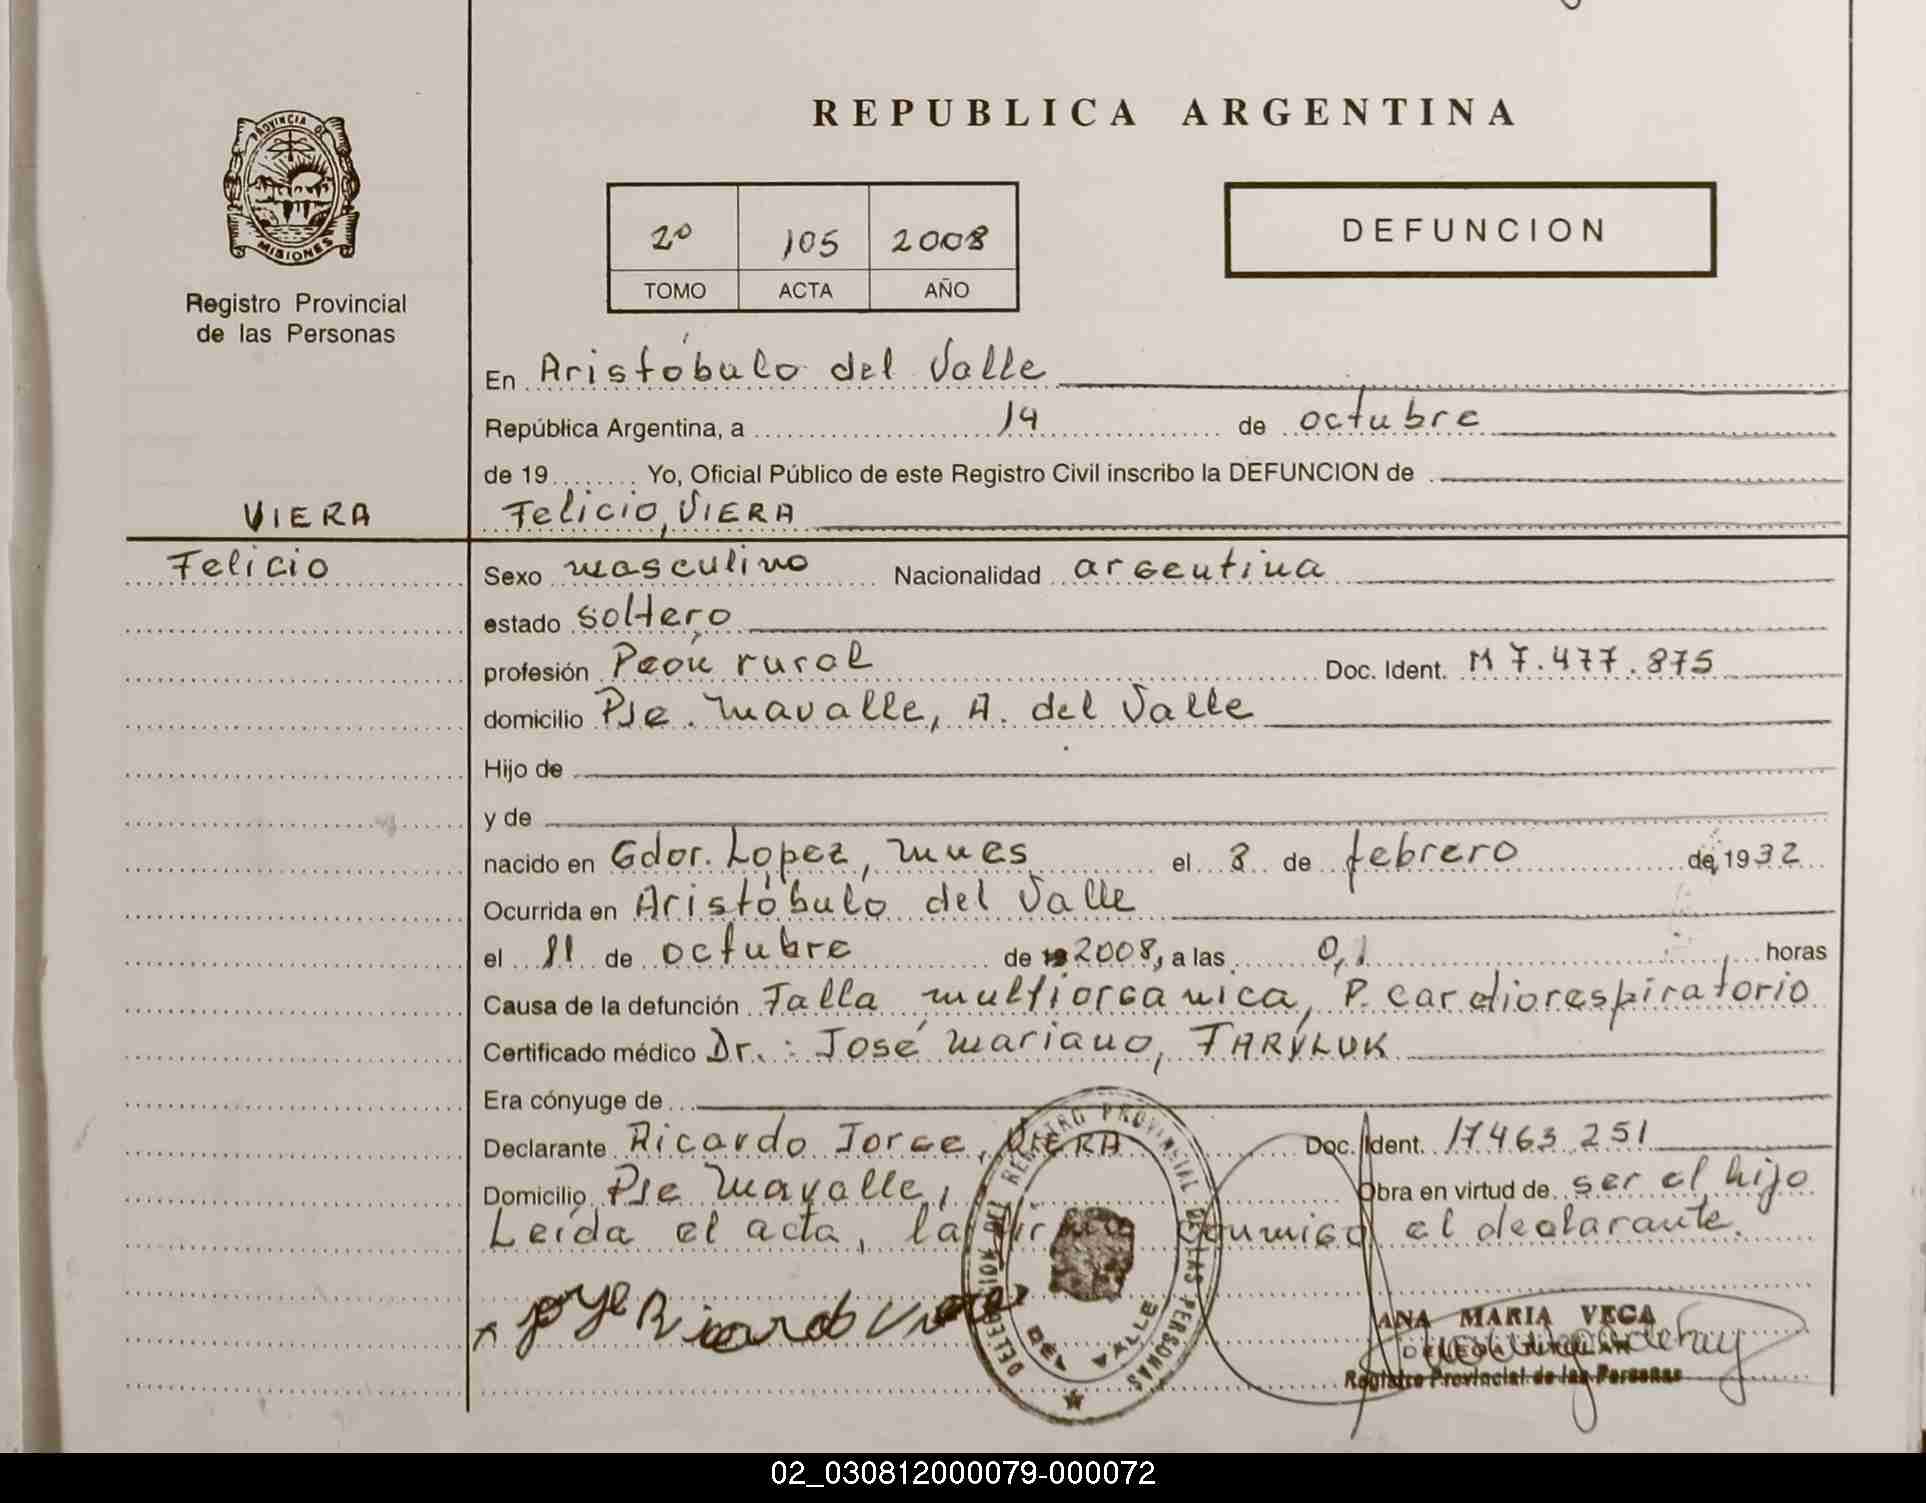 REPUBLICA ARGENTINA
PROVINCIA D
MISIONES
Registro Provincial
de las Personas
2º 105 2008
TOMO ACTA AÑO
DEFUNCION
En Aristóbulo del Valle
República Argentina, a 14 de octubre
de 19 Yo, Oficial Público de este Registro Civil inscribo la DEFUNCION de
VIERA
Felicio, VIERA
Felicio
Sexo masculino Nacionalidad argentina
estado soltero
profesión Peón rural Doc. Ident. M 7.477.875
domicilio Pje. Mavalle, A. del Valle
Hijo de
y de
nacido en Gdor. Lopez, Mnes el 8 de febrero de 1932
Ocurrida en Aristóbulo del Valle
el 11 de octubre de 19 2008, a las 0,1 horas
Causa de la defunción Falla multiorganica, P. cardiorespiratorio
Certificado médico Dr.: José Mariano, TARYLUK
Era cónyuge de
Declarante Ricardo Jorge, VIERA Doc. Ident. 17463251
Domicilio Pje Mavalle, Obra en virtud de ser el hijo
Leída el acta, la firma conmigo el declarante.
Ricardo Viera
REGISTRO PROVINCIAL DE LAS PERSONAS
DEL VALLE
ANA MARIA VEGA
Registro Provincial de las Personas
02_030812000079-000072